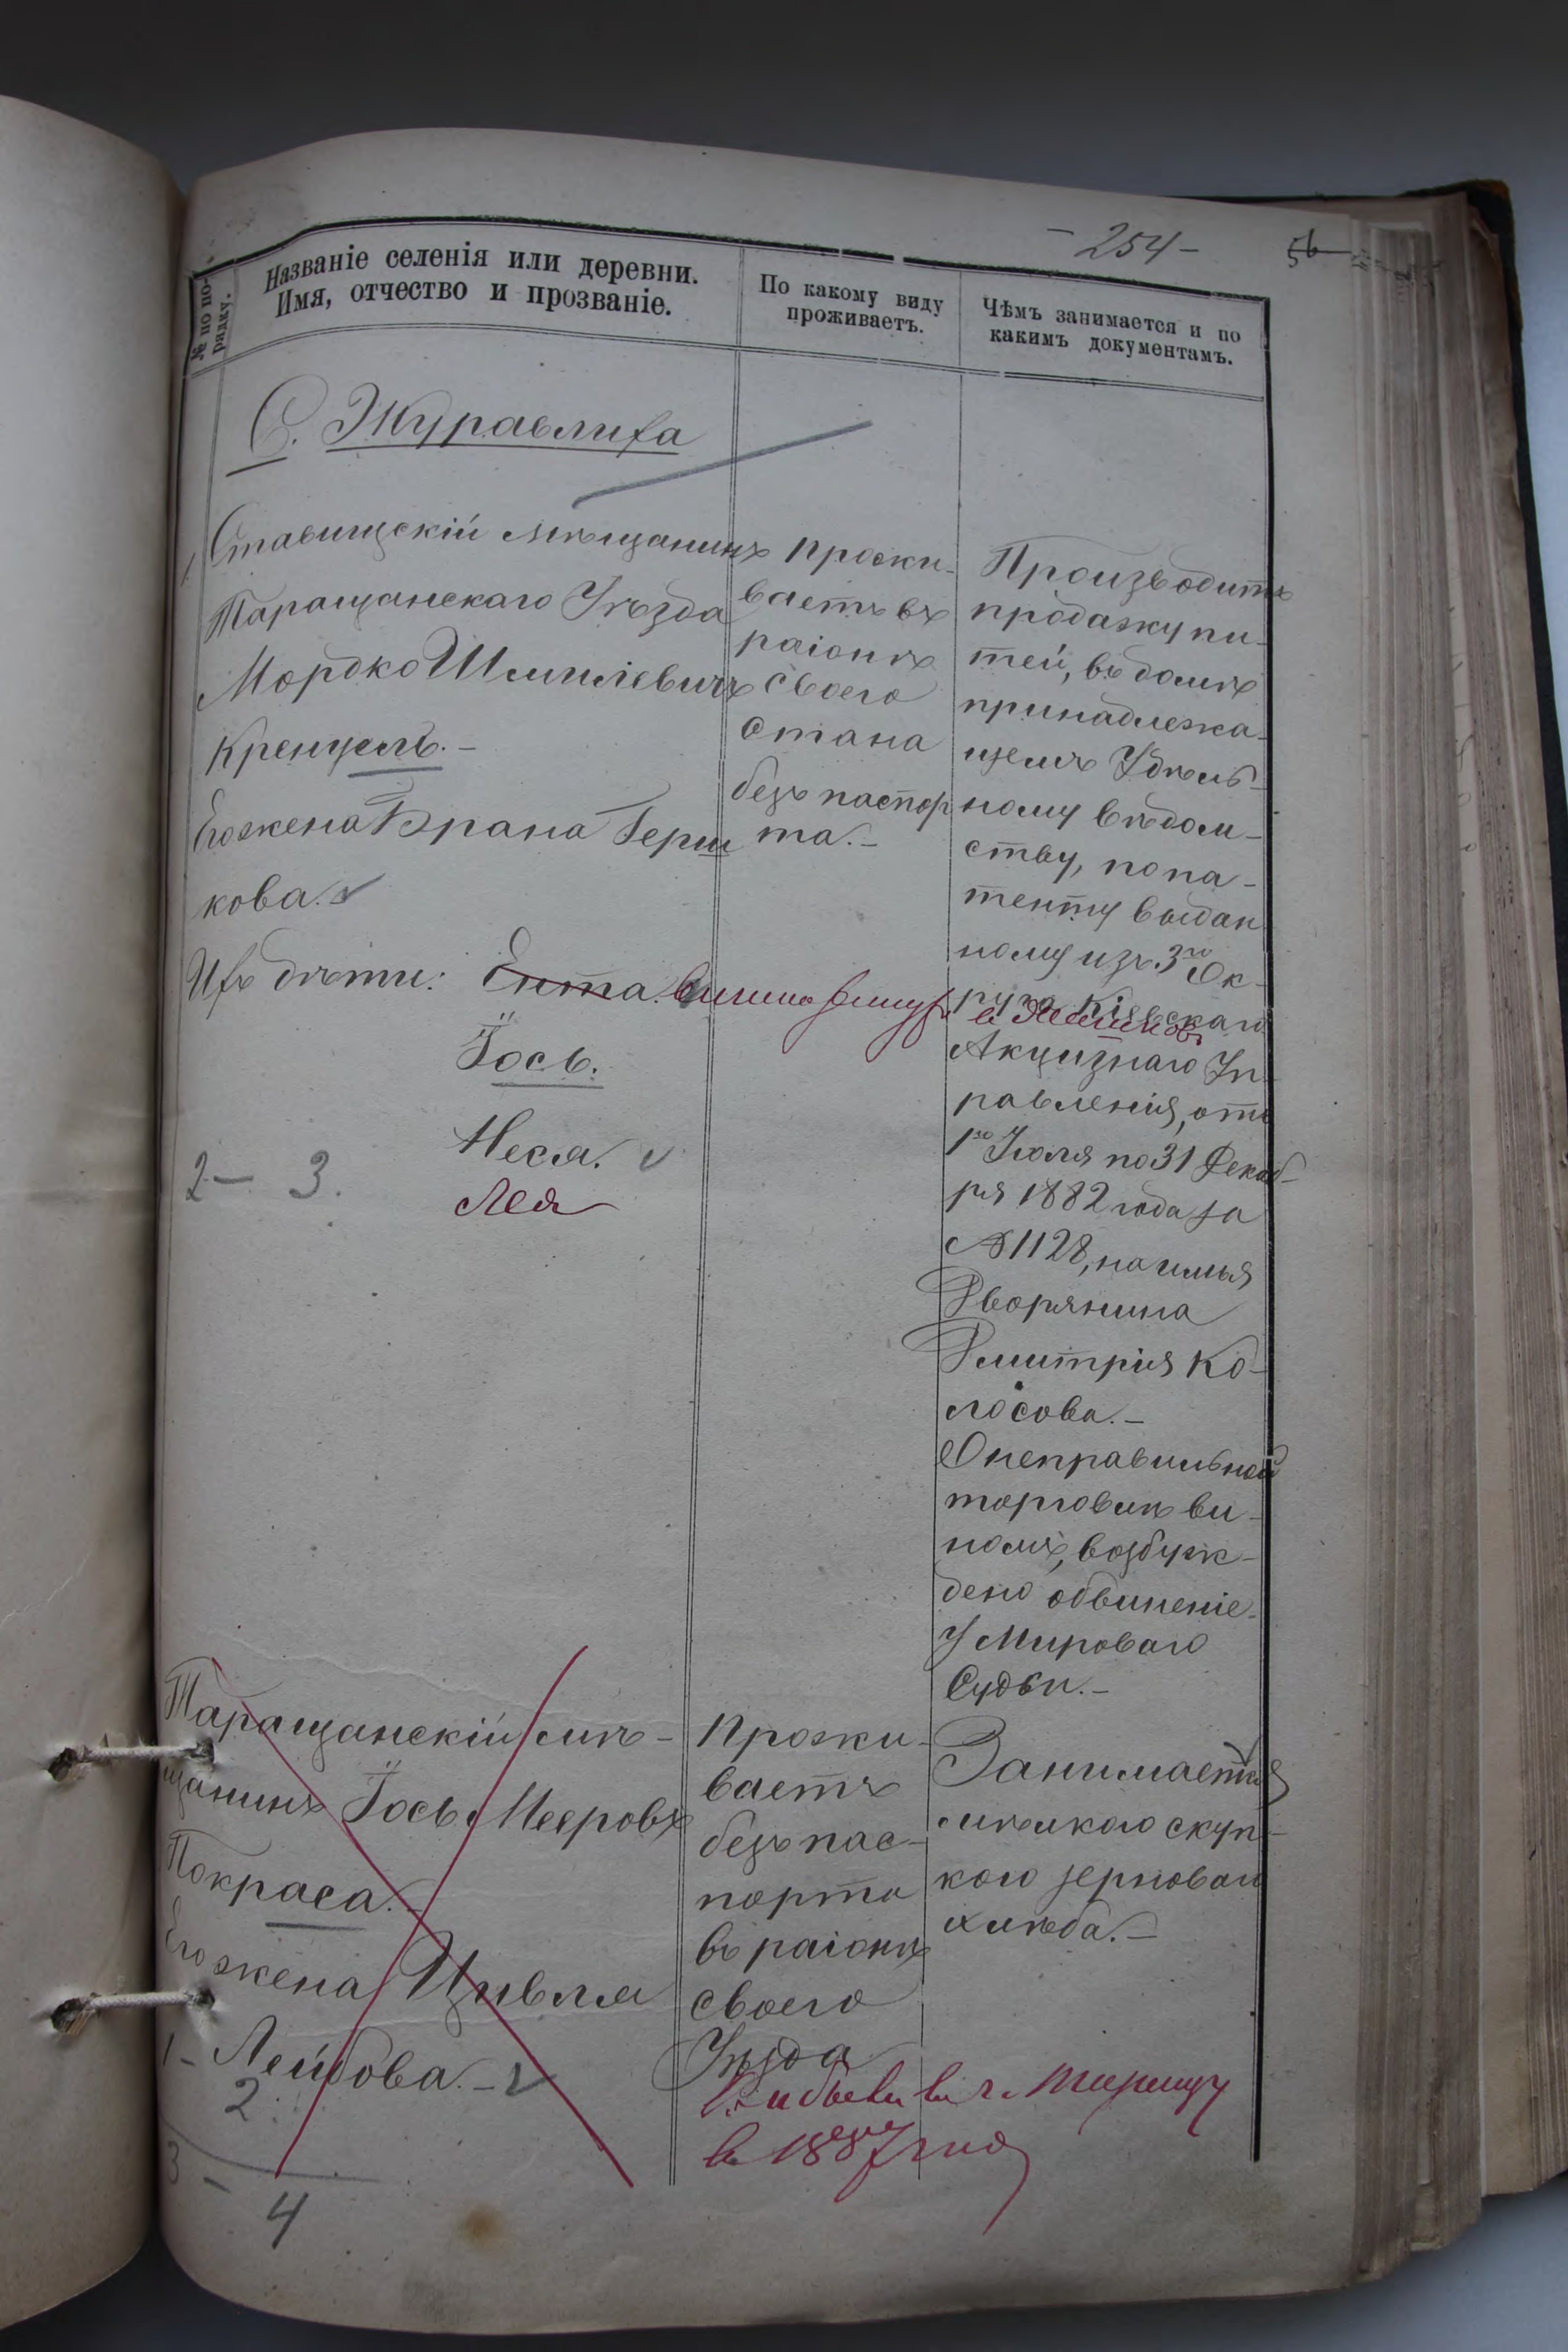 - 254 -
56
№ по по-
рядку.
Названіе селенія или деревни.
Имя, отчество и прозваніе.
По какому виду
проживаетъ.
Чѣмъ занимается и по
какимъ документамъ.
С. Журавлиха
1
Ставищскій мѣщанинъ
Таращанскаго Уѣзда
Мордко Шмилевичъ
Кренцель. -
Его жена Брана Герш
кова.
Ихъ дѣти: Ента.
Іось.
Неся.
2 - 3.
Лея
Прожи-
ваетъ въ
раіонѣ
своего
Стана
безъ паспор
та. -
Производитъ
продажу пи-
тей, въ домѣ
принадлежа-
щемъ Удѣль-
ному вѣдом-
ству, по па-
тенту выдан
ному изъ 3го Ок-
руга Кіевскаго
Акцизнаго Уп-
равленія, отъ
1го Іюля по 31 Декаб-
ря 1882 года за
№ 1128, на имя
Дворянина
Дмитрія Ко-
лосова. -
О неправильной
торговлѣ ви-
номъ, возбуж-
дено обвиненіе
у Мироваго
Судьи. -
Таращанскій мѣ-
щанинъ Іось Мееровъ
Покраса. -
Его жена Цивля
1 - Лейбова. -
2
3 -
4
Прожи-
ваетъ
безъ пас-
порта
въ раіонѣ
своего
Уѣзда
Занимается
мѣлкою скуп-
кою зерноваго
хлѣба. -
въ 1887 году